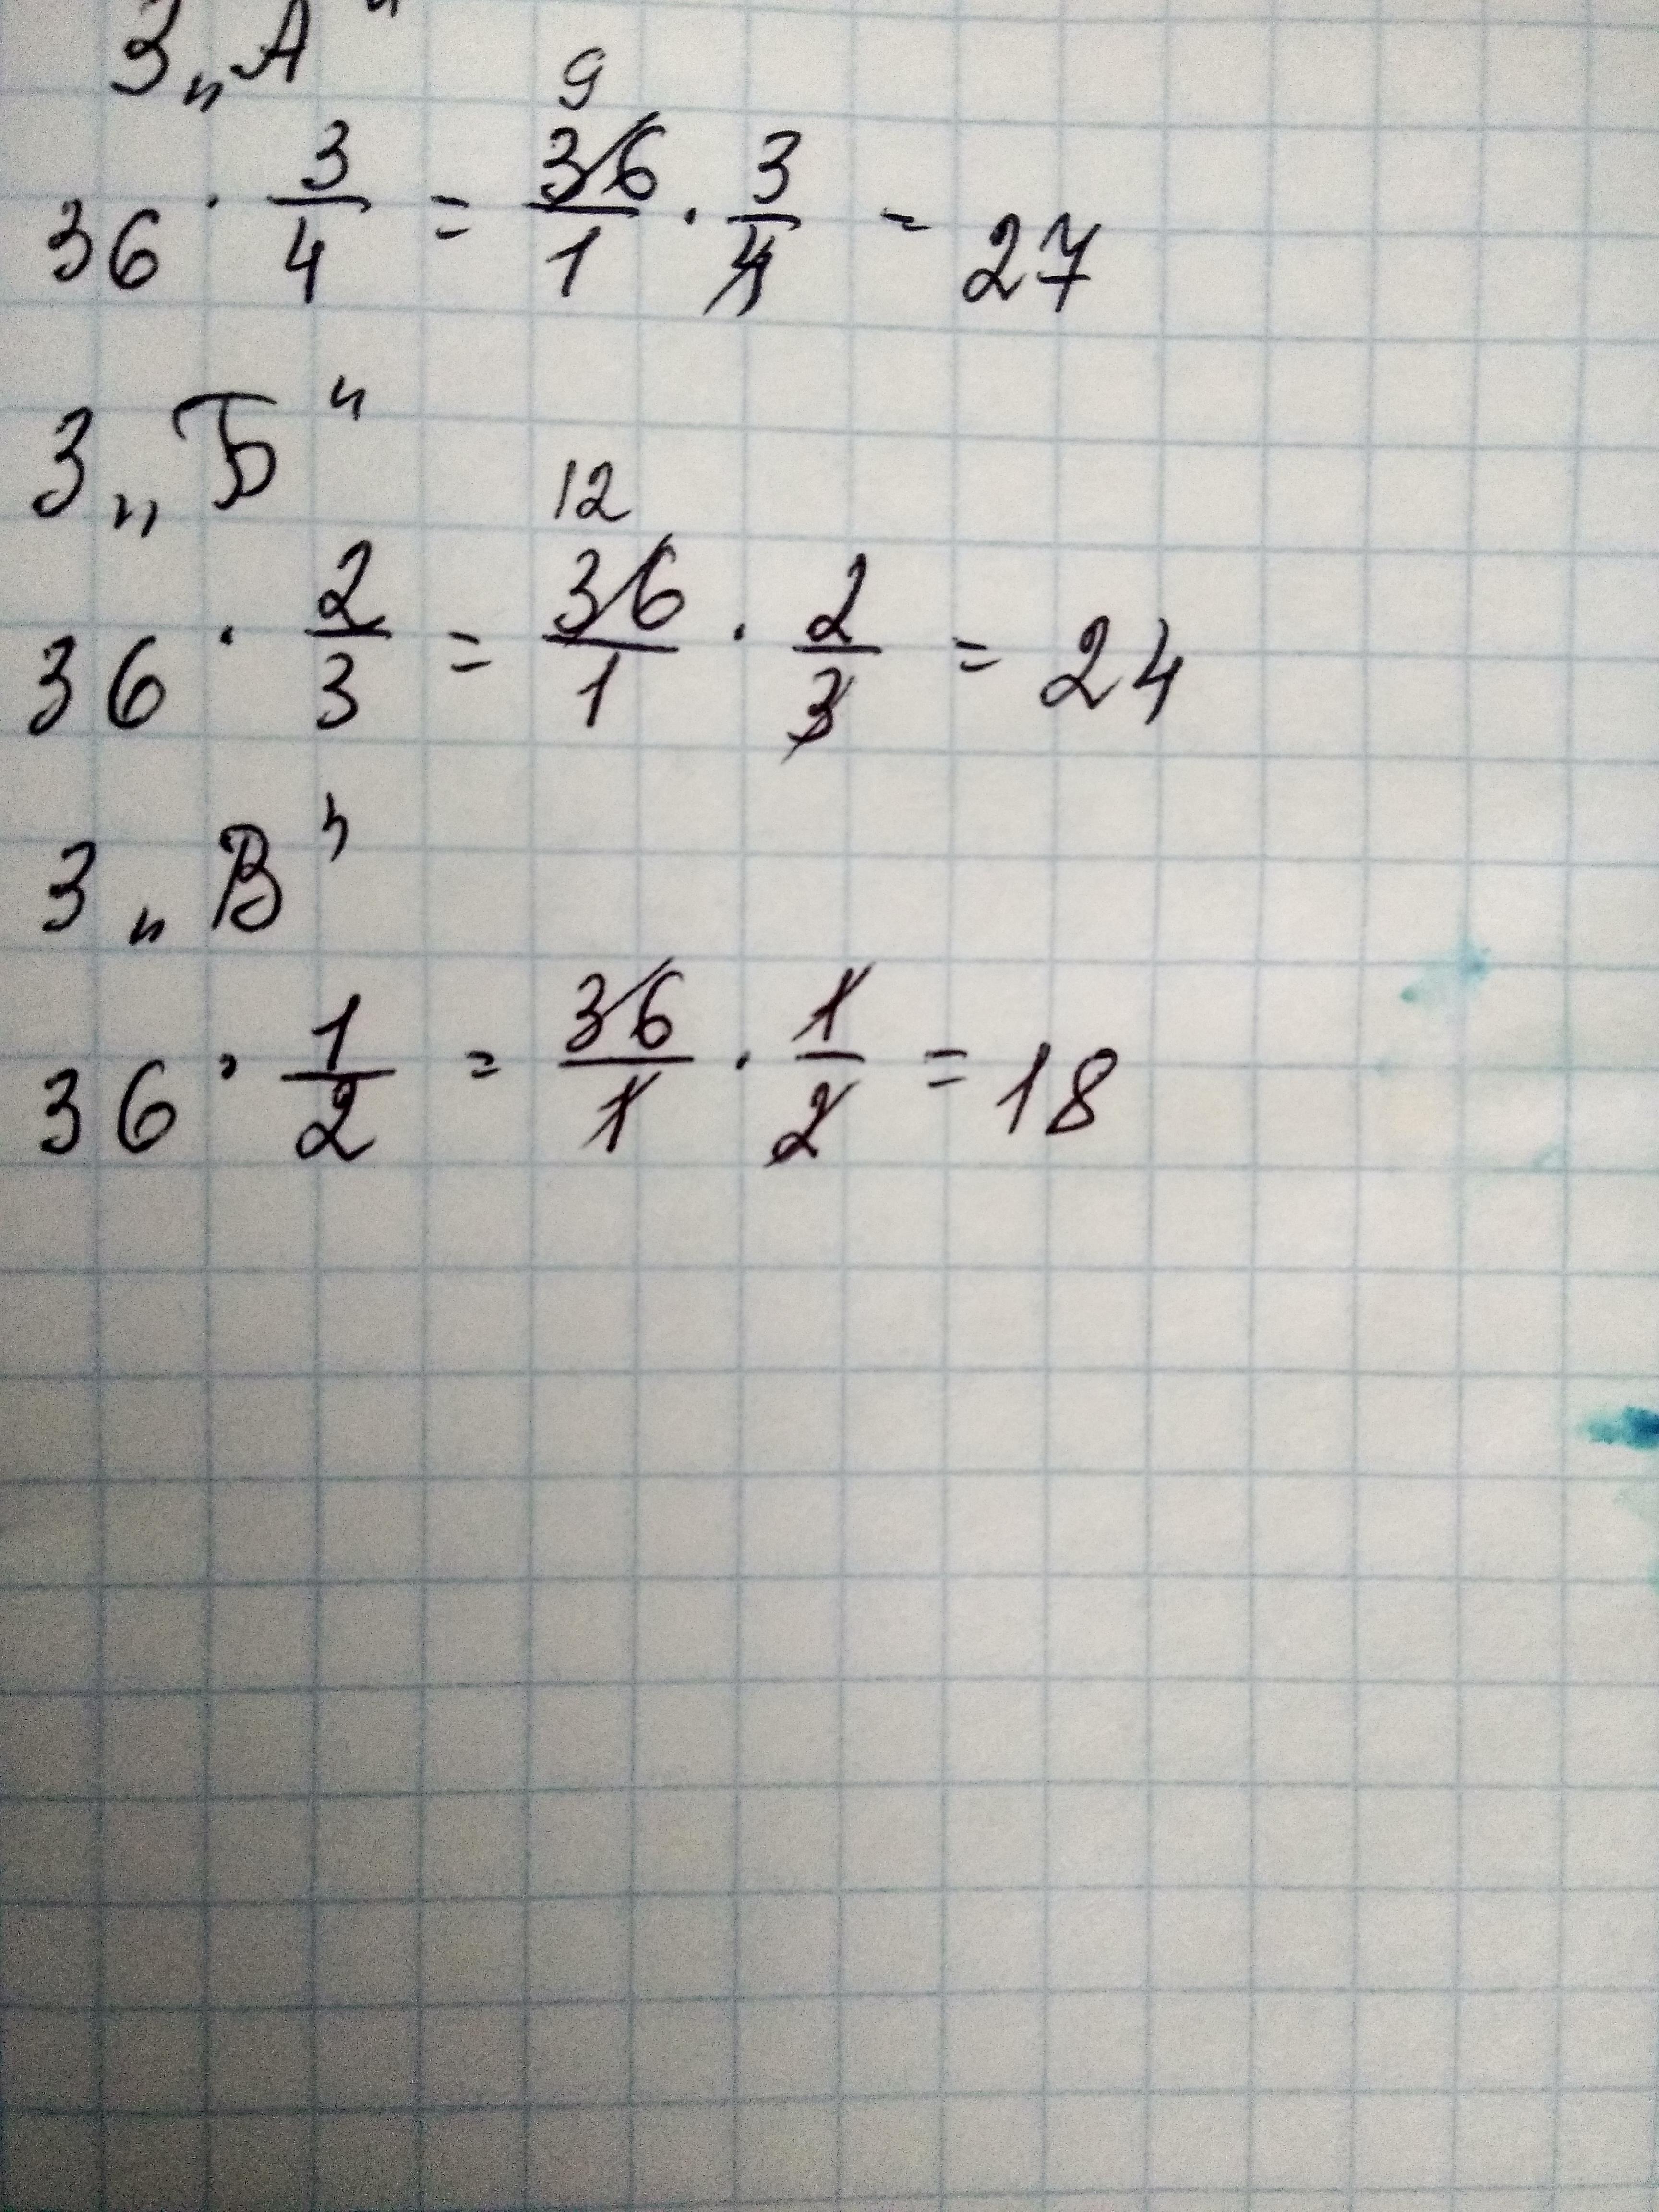 3 „А“
36 · 3/4 = 9 36/1 · 3/4 = 27
3 „Б“
36 · 2/3 = 12 36/1 · 2/3 = 24
3 „В“
36 · 1/2 = 36/1 · 1/2 = 18